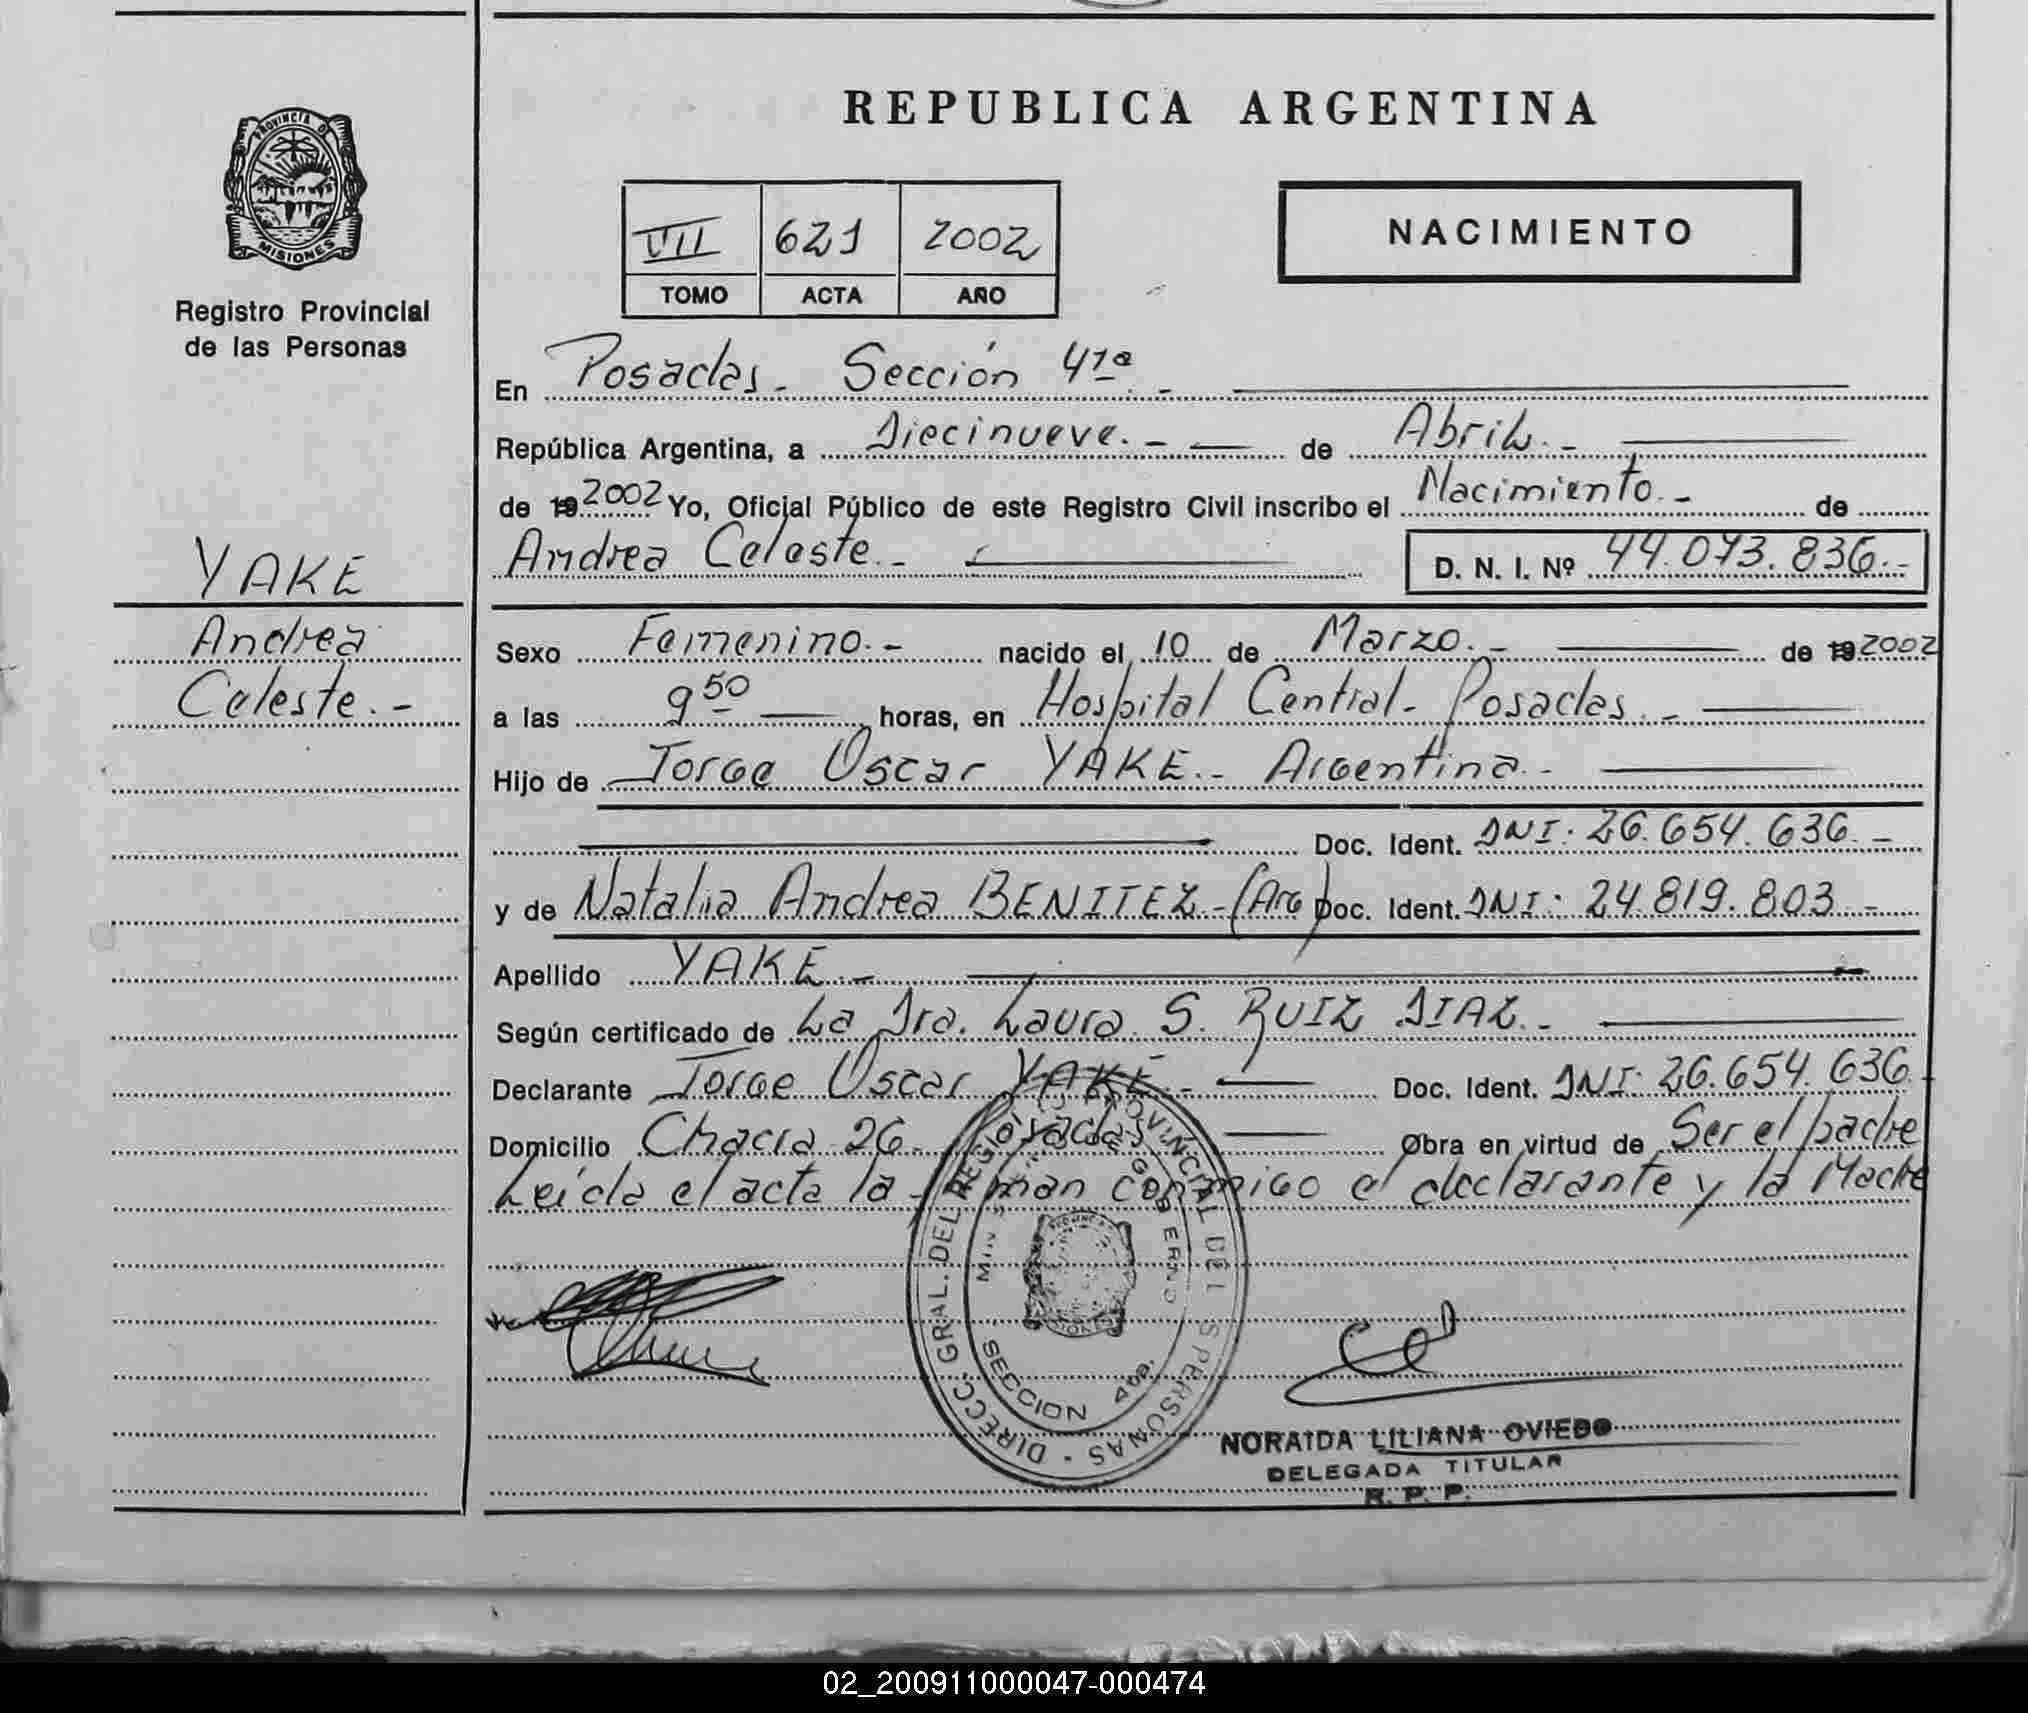 PROVINCIA DE
MISIONES
Registro Provincial
de las Personas
YAKE
Andrea
Celeste.-
REPUBLICA ARGENTINA
VII 621 2002
TOMO ACTA AÑO
NACIMIENTO
En Posadas. Sección 41ª.-
República Argentina, a Diecinueve.- de Abril.-
de 19 2002 Yo, Oficial Público de este Registro Civil inscribo el Nacimiento.- de
Andrea Celeste.- D. N. I. Nº 44.073.836.-
Sexo Femenino.- nacido el 10 de Marzo.- de 19 2002
a las 9 50 horas, en Hospital Central. Posadas.-
Hijo de Jorge Oscar YAKE.- Argentina.-
Doc. Ident. DNI: 26.654.636.-
y de Natalia Andrea BENITEZ.-(Arg) Doc. Ident. DNI: 24.819.803.-
Apellido YAKE.-
Según certificado de La Dra. Laura S. RUIZ DIAZ.-
Declarante Jorge Oscar YAKE.- Doc. Ident. DNI: 26.654.636
Domicilio Chacra 26. Posadas Obra en virtud de Ser el padre
Leida el acta la firman conmigo el declarante y la Madre
DIRECC. GRAL. DEL REGISTRO PROVINCIAL DE LAS PERSONAS
GOBIERNO
SECCION
NORAIDA LILIANA OVIEDO
DELEGADA TITULAR
R. P. P.
02_200911000047-000474